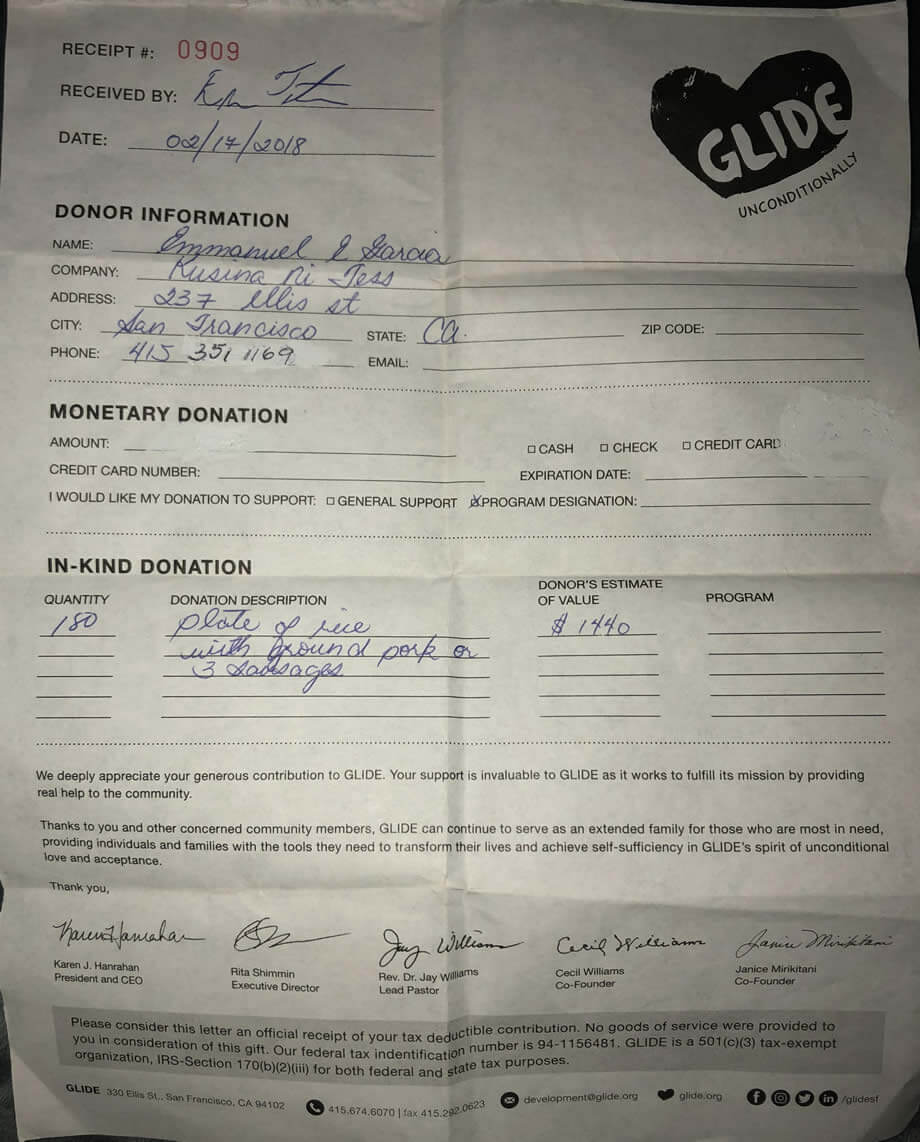 RECEIPT #: 0909
RECEIVED BY:
DATE: 02/17/2018
GLIDE
UNCONDITIONALLY
DONOR INFORMATION
NAME: Emmanuel E Garcia
COMPANY: Kusina ni Tess
ADDRESS: 237 ellis st
CITY: San Francisco STATE: CA. ZIP CODE:
PHONE: 415 351 1169 EMAIL:
MONETARY DONATION
AMOUNT: □ CASH □ CHECK □ CREDIT CARD
CREDIT CARD NUMBER: EXPIRATION DATE:
I WOULD LIKE MY DONATION TO SUPPORT: □ GENERAL SUPPORT ☒ PROGRAM DESIGNATION:
IN-KIND DONATION
QUANTITY DONATION DESCRIPTION DONOR'S ESTIMATE OF VALUE PROGRAM
180 plate of rice $ 1440
with ground pork or
3 sausages
We deeply appreciate your generous contribution to GLIDE. Your support is invaluable to GLIDE as it works to fulfill its mission by providing
real help to the community.
Thanks to you and other concerned community members, GLIDE can continue to serve as an extended family for those who are most in need,
providing individuals and families with the tools they need to transform their lives and achieve self-sufficiency in GLIDE's spirit of unconditional
love and acceptance.
Thank you,
Karen Hanrahan Jay Williams Cecil Williams Janice Mirikitani
Karen J. Hanrahan Rita Shimmin Rev. Dr. Jay Williams Cecil Williams Janice Mirikitani
President and CEO Executive Director Lead Pastor Co-Founder Co-Founder
Please consider this letter an official receipt of your tax deductible contribution. No goods of service were provided to
you in consideration of this gift. Our federal tax indentification number is 94-1156481. GLIDE is a 501(c)(3) tax-exempt
organization, IRS-Section 170(b)(2)(iii) for both federal and state tax purposes.
GLIDE 330 Ellis St., San Francisco, CA 94102 415.674.6070 | fax 415.292.0623 development@glide.org glide.org /glidesf